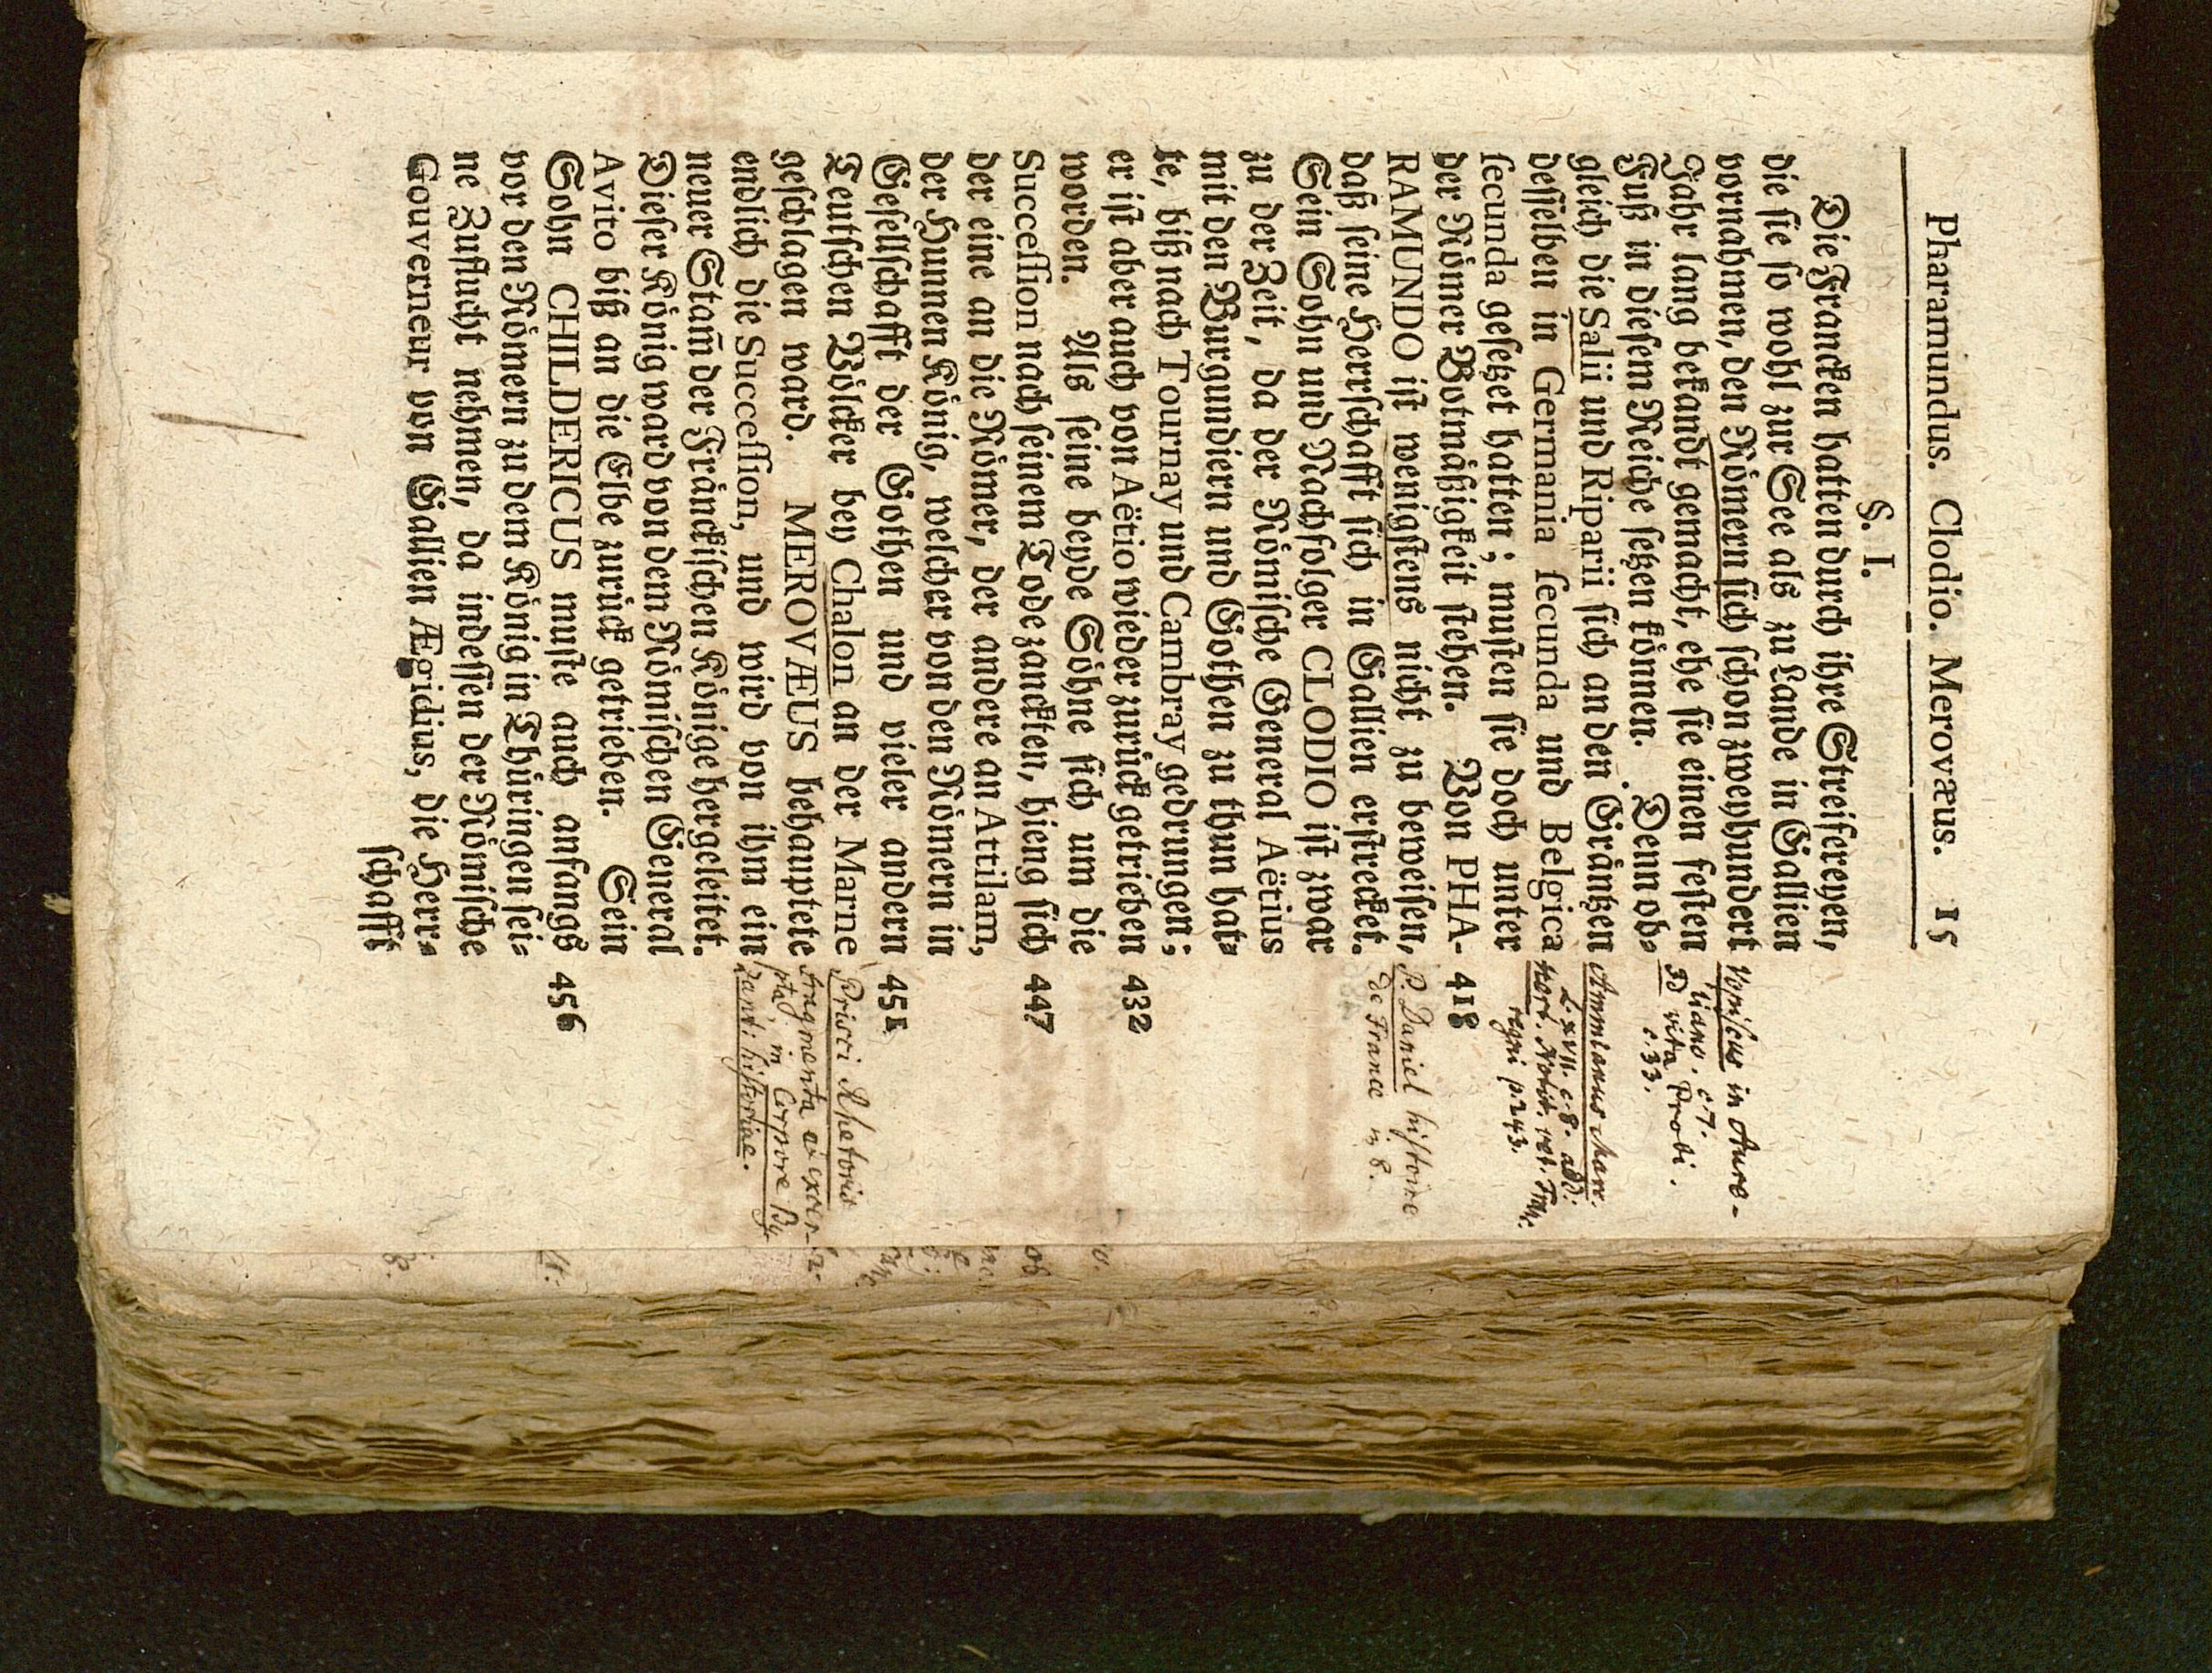 Pharamundus. Clodio. Merovæus. 15
§. I.
Die Francken hatten durch ihre Streifereyen,
die sie so wohl zur See als zu Lande in Gallien
vornahmen, den Römern sich schon zweyhundert
Jahr lang bekandt gemacht, ehe sie einen festen
Fuß in diesem Reiche setzen können. Denn ob-
gleich die Salii und Riparii sich an den Gräntzen
desselben in Germania secunda und Belgica
secunda gesetzet hatten; musten sie doch unter
der Römer Botmäßigkeit stehen. Von PHA-
RAMUNDO ist wenigstens nicht zu beweisen,
daß seine Herrschafft sich in Gallien erstrecket.
Sein Sohn und Nachfolger CLODIO ist zwar
zu der Zeit, da der Römische General Aëtius
mit den Burgundiern und Gothen zu thun hat-
te, biß nach Tournay und Cambray gedrungen;
er ist aber auch von Aëtio wieder zurück getrieben
worden. Als seine beyde Söhne sich um die
Succession nach seinem Tode zanckten, hieng sich
der eine an die Römer, der andere an Attilam,
der Hunnen König, welcher von den Römern in
Gesellschafft der Gothen und vieler andern
Teutschen Völcker bey Chalon an der Marne
geschlagen ward. MEROVÆUS behauptete
endlich die Succession, und wird von ihm ein
neuer Stam̃ der Fränckischen Könige hergeleitet.
Dieser König ward von dem Römischen General
Avito biß an die Elbe zurück getrieben. Sein
Sohn CHILDERICUS muste auch anfangs
vor den Römern zu dem König in Thüringen sei-
ne Zuflucht nehmen, da indessen der Römische
Gouverneur von Gallien Ægidius, die Herr-
schafft
Vopiscus in Aure-
liano. c. 7.
vita Probi.
c. 33.
Ammianus Marc.
L. XVII. c. 8. add:
regni p. 243.
418
P. Daniel histoire
de France in 8.
432
447
451
Prisci Rhetoris
fragmenta
in Corpore By-
zant: historiae.
456